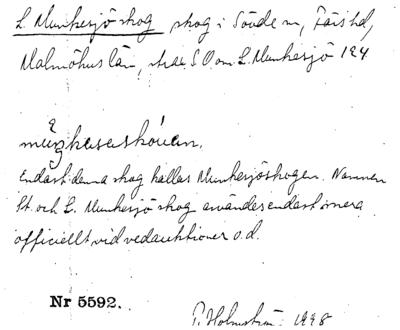 L. Munkesjö skog skog i Sövde sn, Färs hd,
Malmöhus län, strax SO om L. Munkesjö 124
Endast denna skog kallas Munkesjöskogen. Namnen
St. och L. Munkesjö skog användes endast mera
officiellt vid vedauktioner o.d.
Nr 5592.
P. Holmström, 1998